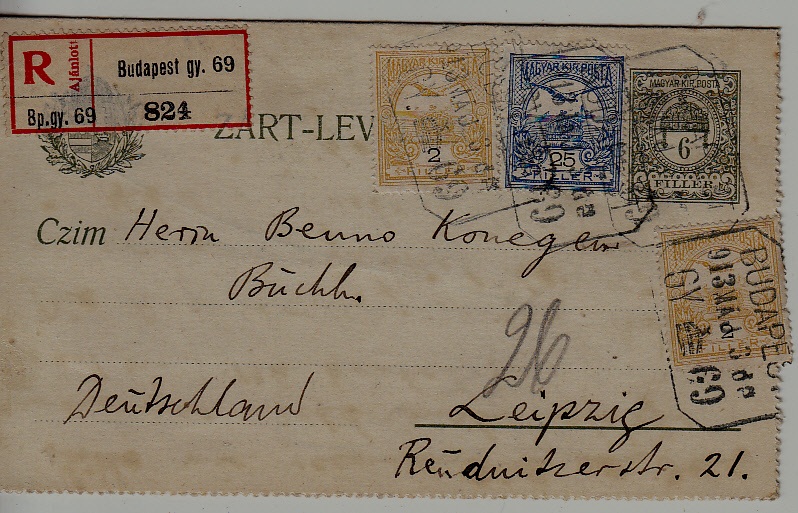 R Ajánlott Budapest gy. 69
Bp.gy. 69 824
ZÁRT-LEV
MAGYAR·KIR·POSTA
2
FILLER
MAGYAR·KIR·POSTA
25
FILLER
MAGYAR·KIR·POSTA
6
FILLER
Czim Herrn Benno Konegen
Buchh.
2
BUDAPEST
913 MA
GY 69
26
Deutschland Leipzig
Reudnitzerstr. 21.